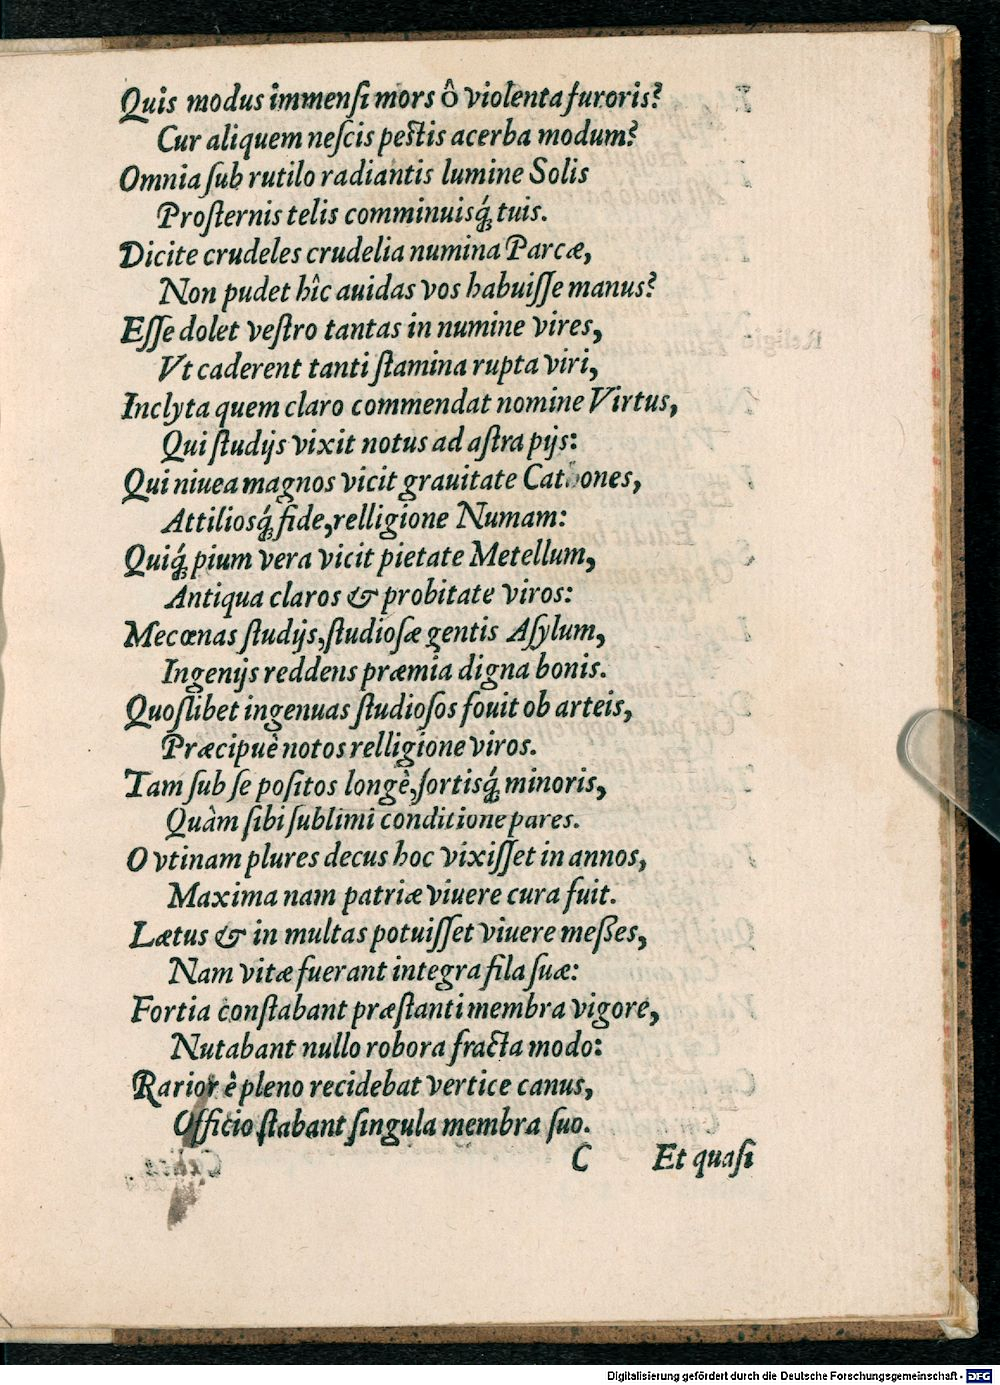 Quis modus immenſi mors ô violenta furoris?
Cur aliquem neſcis peſtis acerba modum?
Omnia ſub rutilo radiantis lumine Solis
Proſternis telis comminuisq́; tuis.
Dicite crudeles crudelia numina Parcæ,
Non pudet hîc auidas vos habuiſſe manus?
Eſſe dolet veſtro tantas in numine vires,
Vt caderent tanti ſtamina rupta viri,
Inclyta quem claro commendat nomine Virtus,
Qui ſtudijs vixit notus ad aſtra pijs:
Qui niuea magnos vicit grauitate Catones,
Attiliosq́; fide, relligione Numam:
Quiq́; pium vera vicit pietate Metellum,
Antiqua claros & probitate viros:
Mecœnas ſtudijs, ſtudioſæ gentis Aſylum,
Ingenijs reddens præmia digna bonis.
Quoſlibet ingenuas ſtudioſos fouit ob arteis,
Præcipuè notos relligione viros.
Tam ſub ſe poſitos longè, ſortisq́; minoris,
Quàm ſibi ſublimi conditione pares.
O vtinam plures decus hoc vixiſſet in annos,
Maxima nam patriæ viuere cura fuit.
Lætus & in multas potuiſſet viuere meſſes,
Nam vitæ fuerant integra fila ſuæ:
Fortia conſtabant præſtanti membra vigore,
Nutabant nullo robora fracta modo:
Rarior è pleno recidebat vertice canus,
Officio ſtabant ſingula membra ſuo.
C Et quaſi
Digitalisierung gefördert durch die Deutsche Forschungsgemeinschaft - DFG